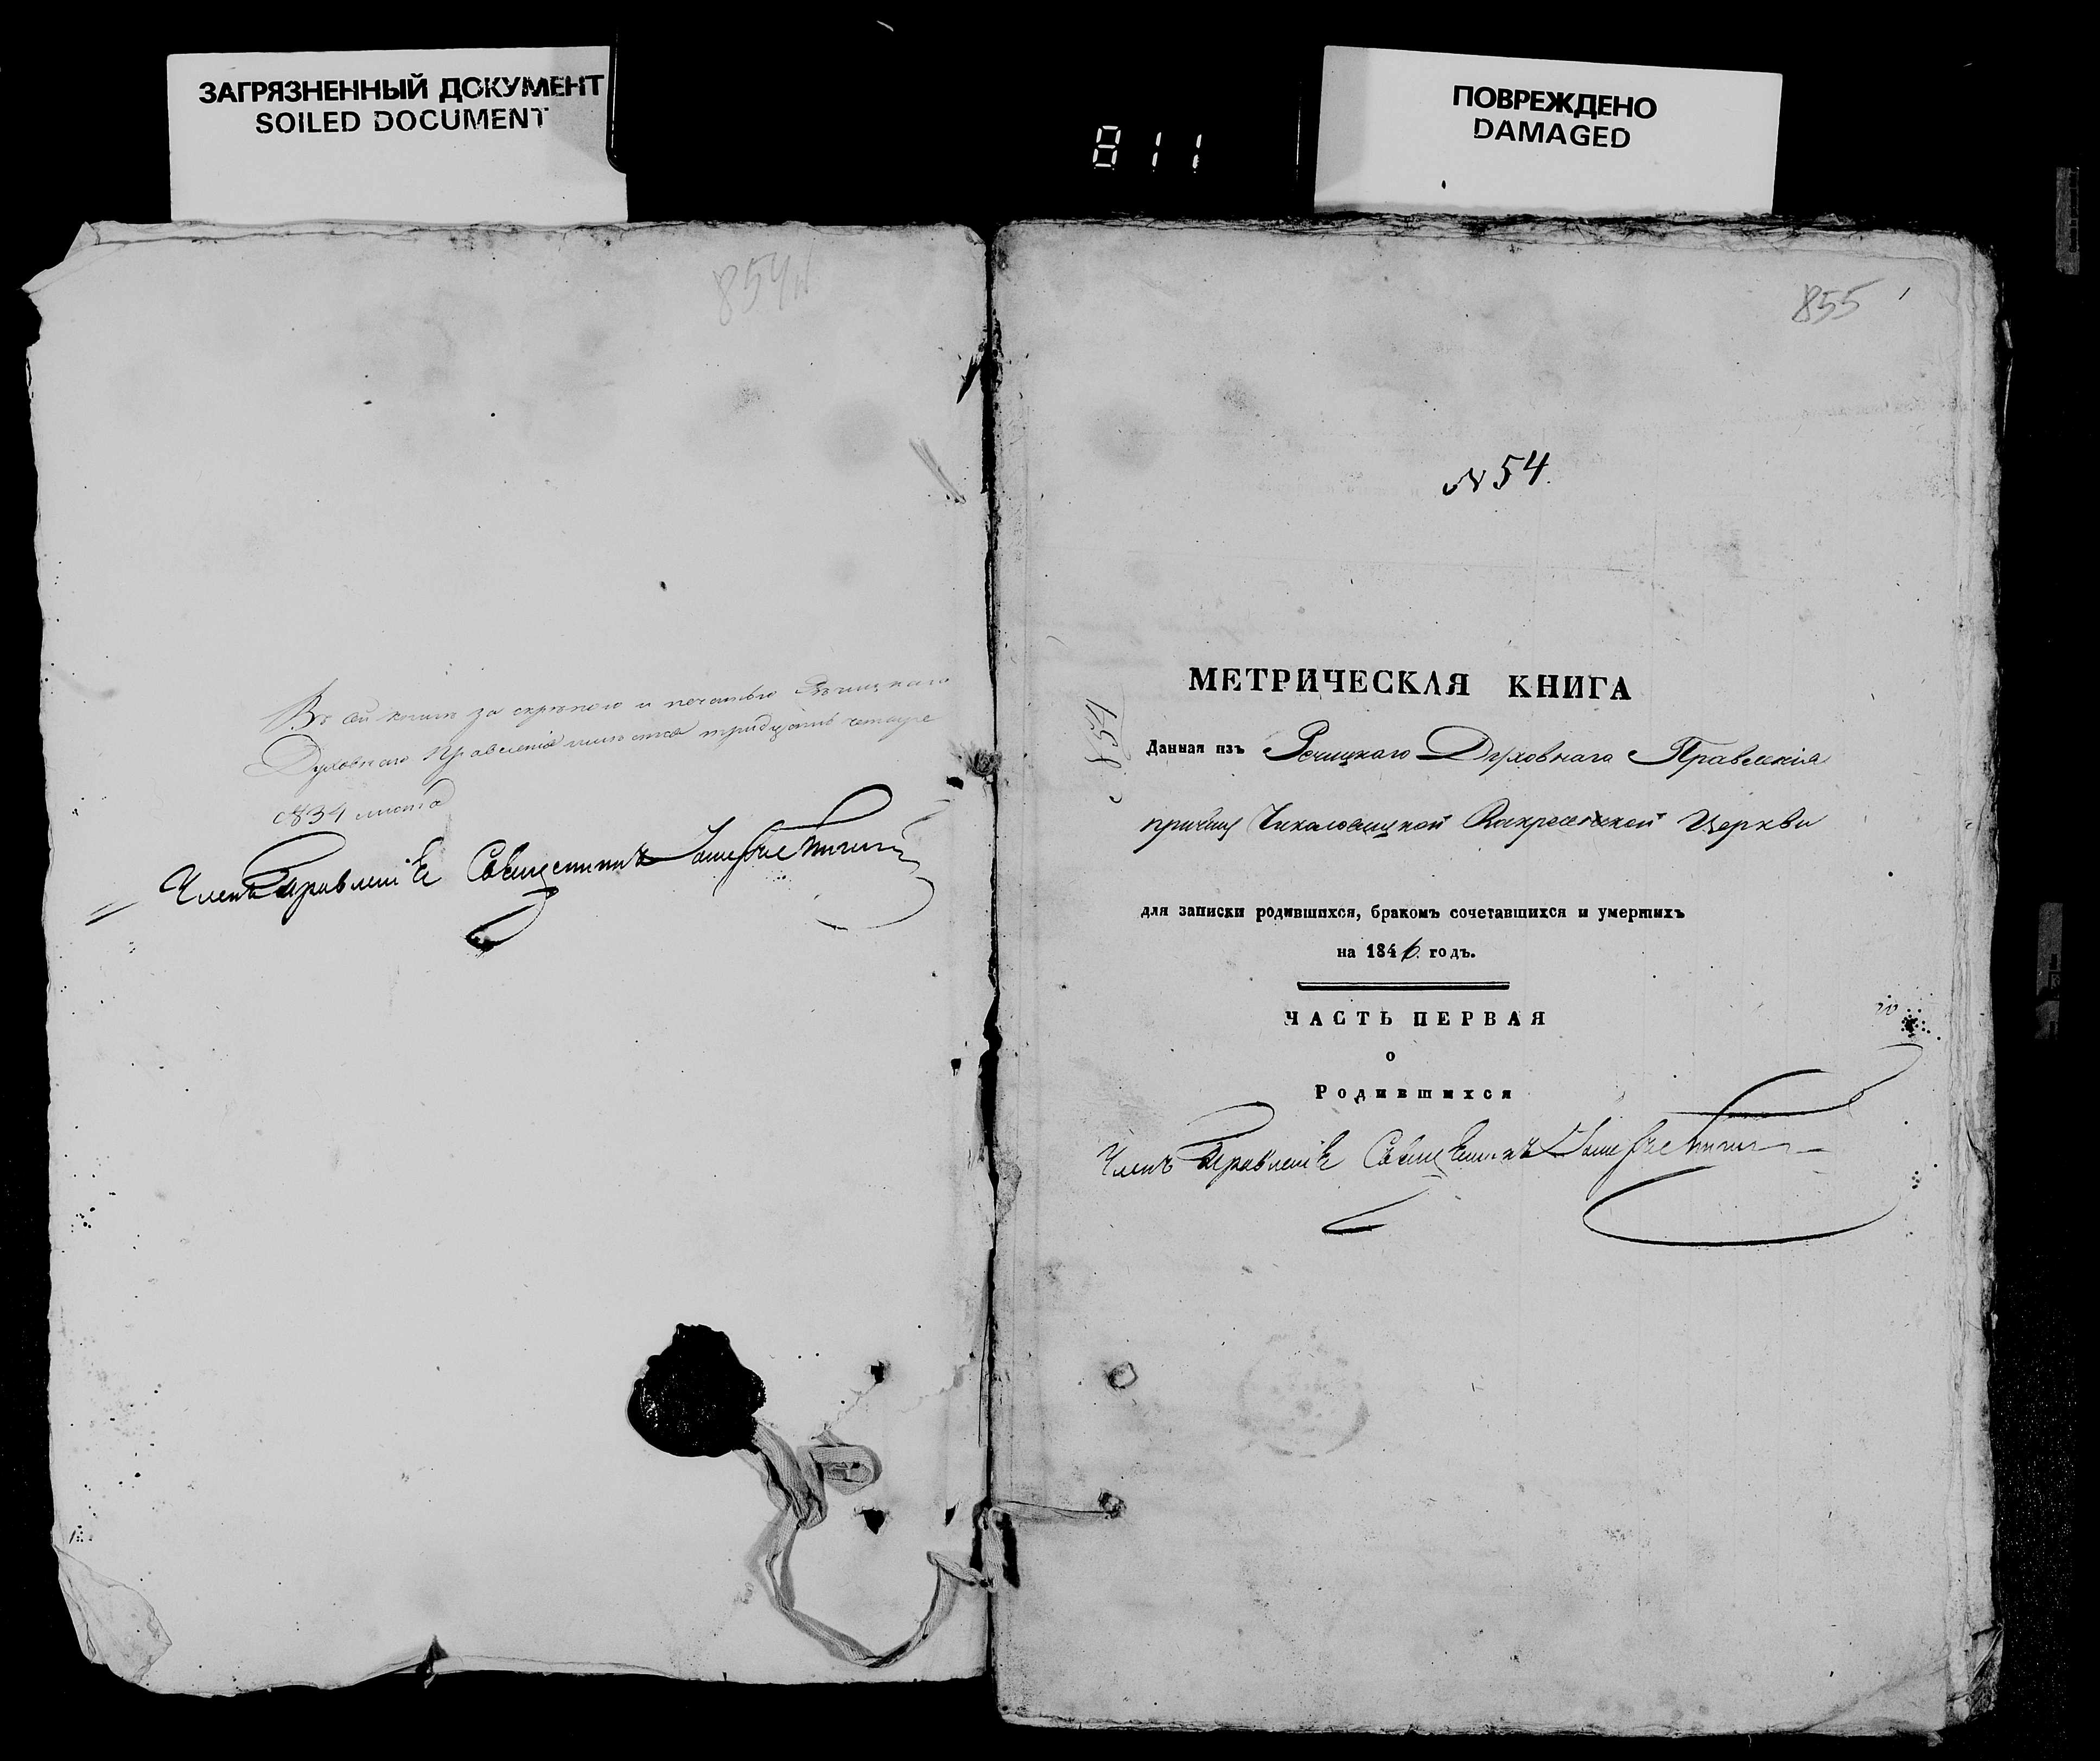 ЗАГРЯЗНЕННЫЙ ДОКУМЕНТ
SOILED DOCUMENT
811
ПОВРЕЖДЕНО
DAMAGED
854
Въ сей книгѣ за скрѣпою и печатью Рѣчицкаго
Духовнаго Правленія листовъ тридцать четыре
34 листа
Членъ Правленія Священникъ
855
N 54.
МЕТРИЧЕСКАЯ КНИГА
Данная изъ Речицкаго Духовнаго Правленія
причту Чиколовицкой Церкви
для записки родившихся, бракомъ сочетавшихся и умершихъ
на 1846 годъ.
ЧАСТЬ ПЕРВАЯ
о
Родившихся
Членъ Правленія Священникъ